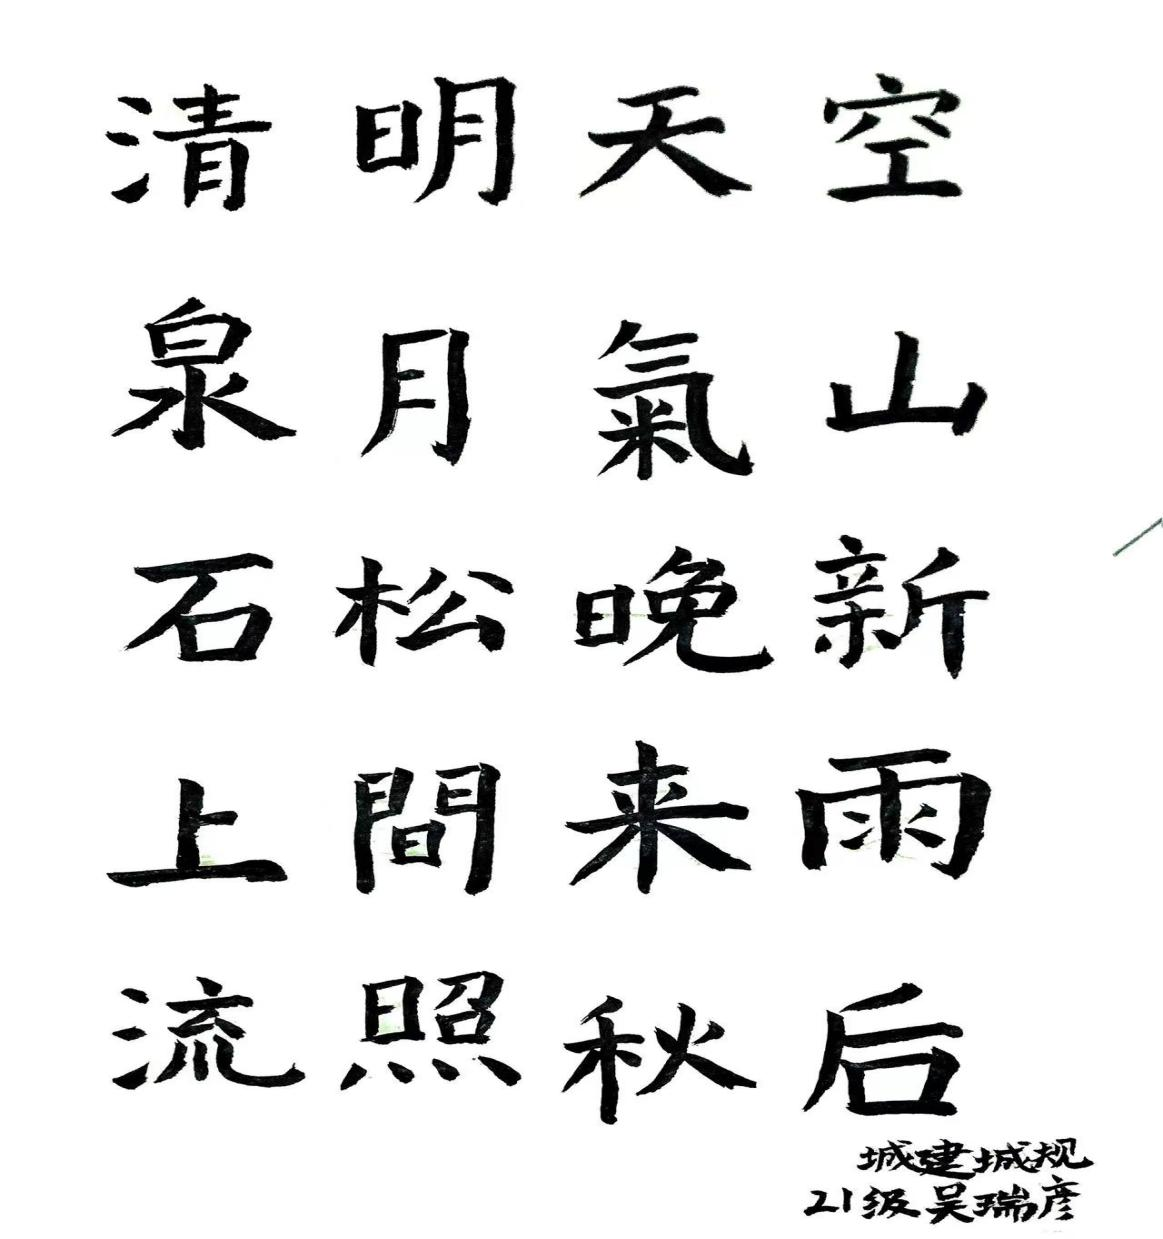 空山新雨后
天氣晚来秋
明月松間照
清泉石上流
城建城规
21级吴瑞彦